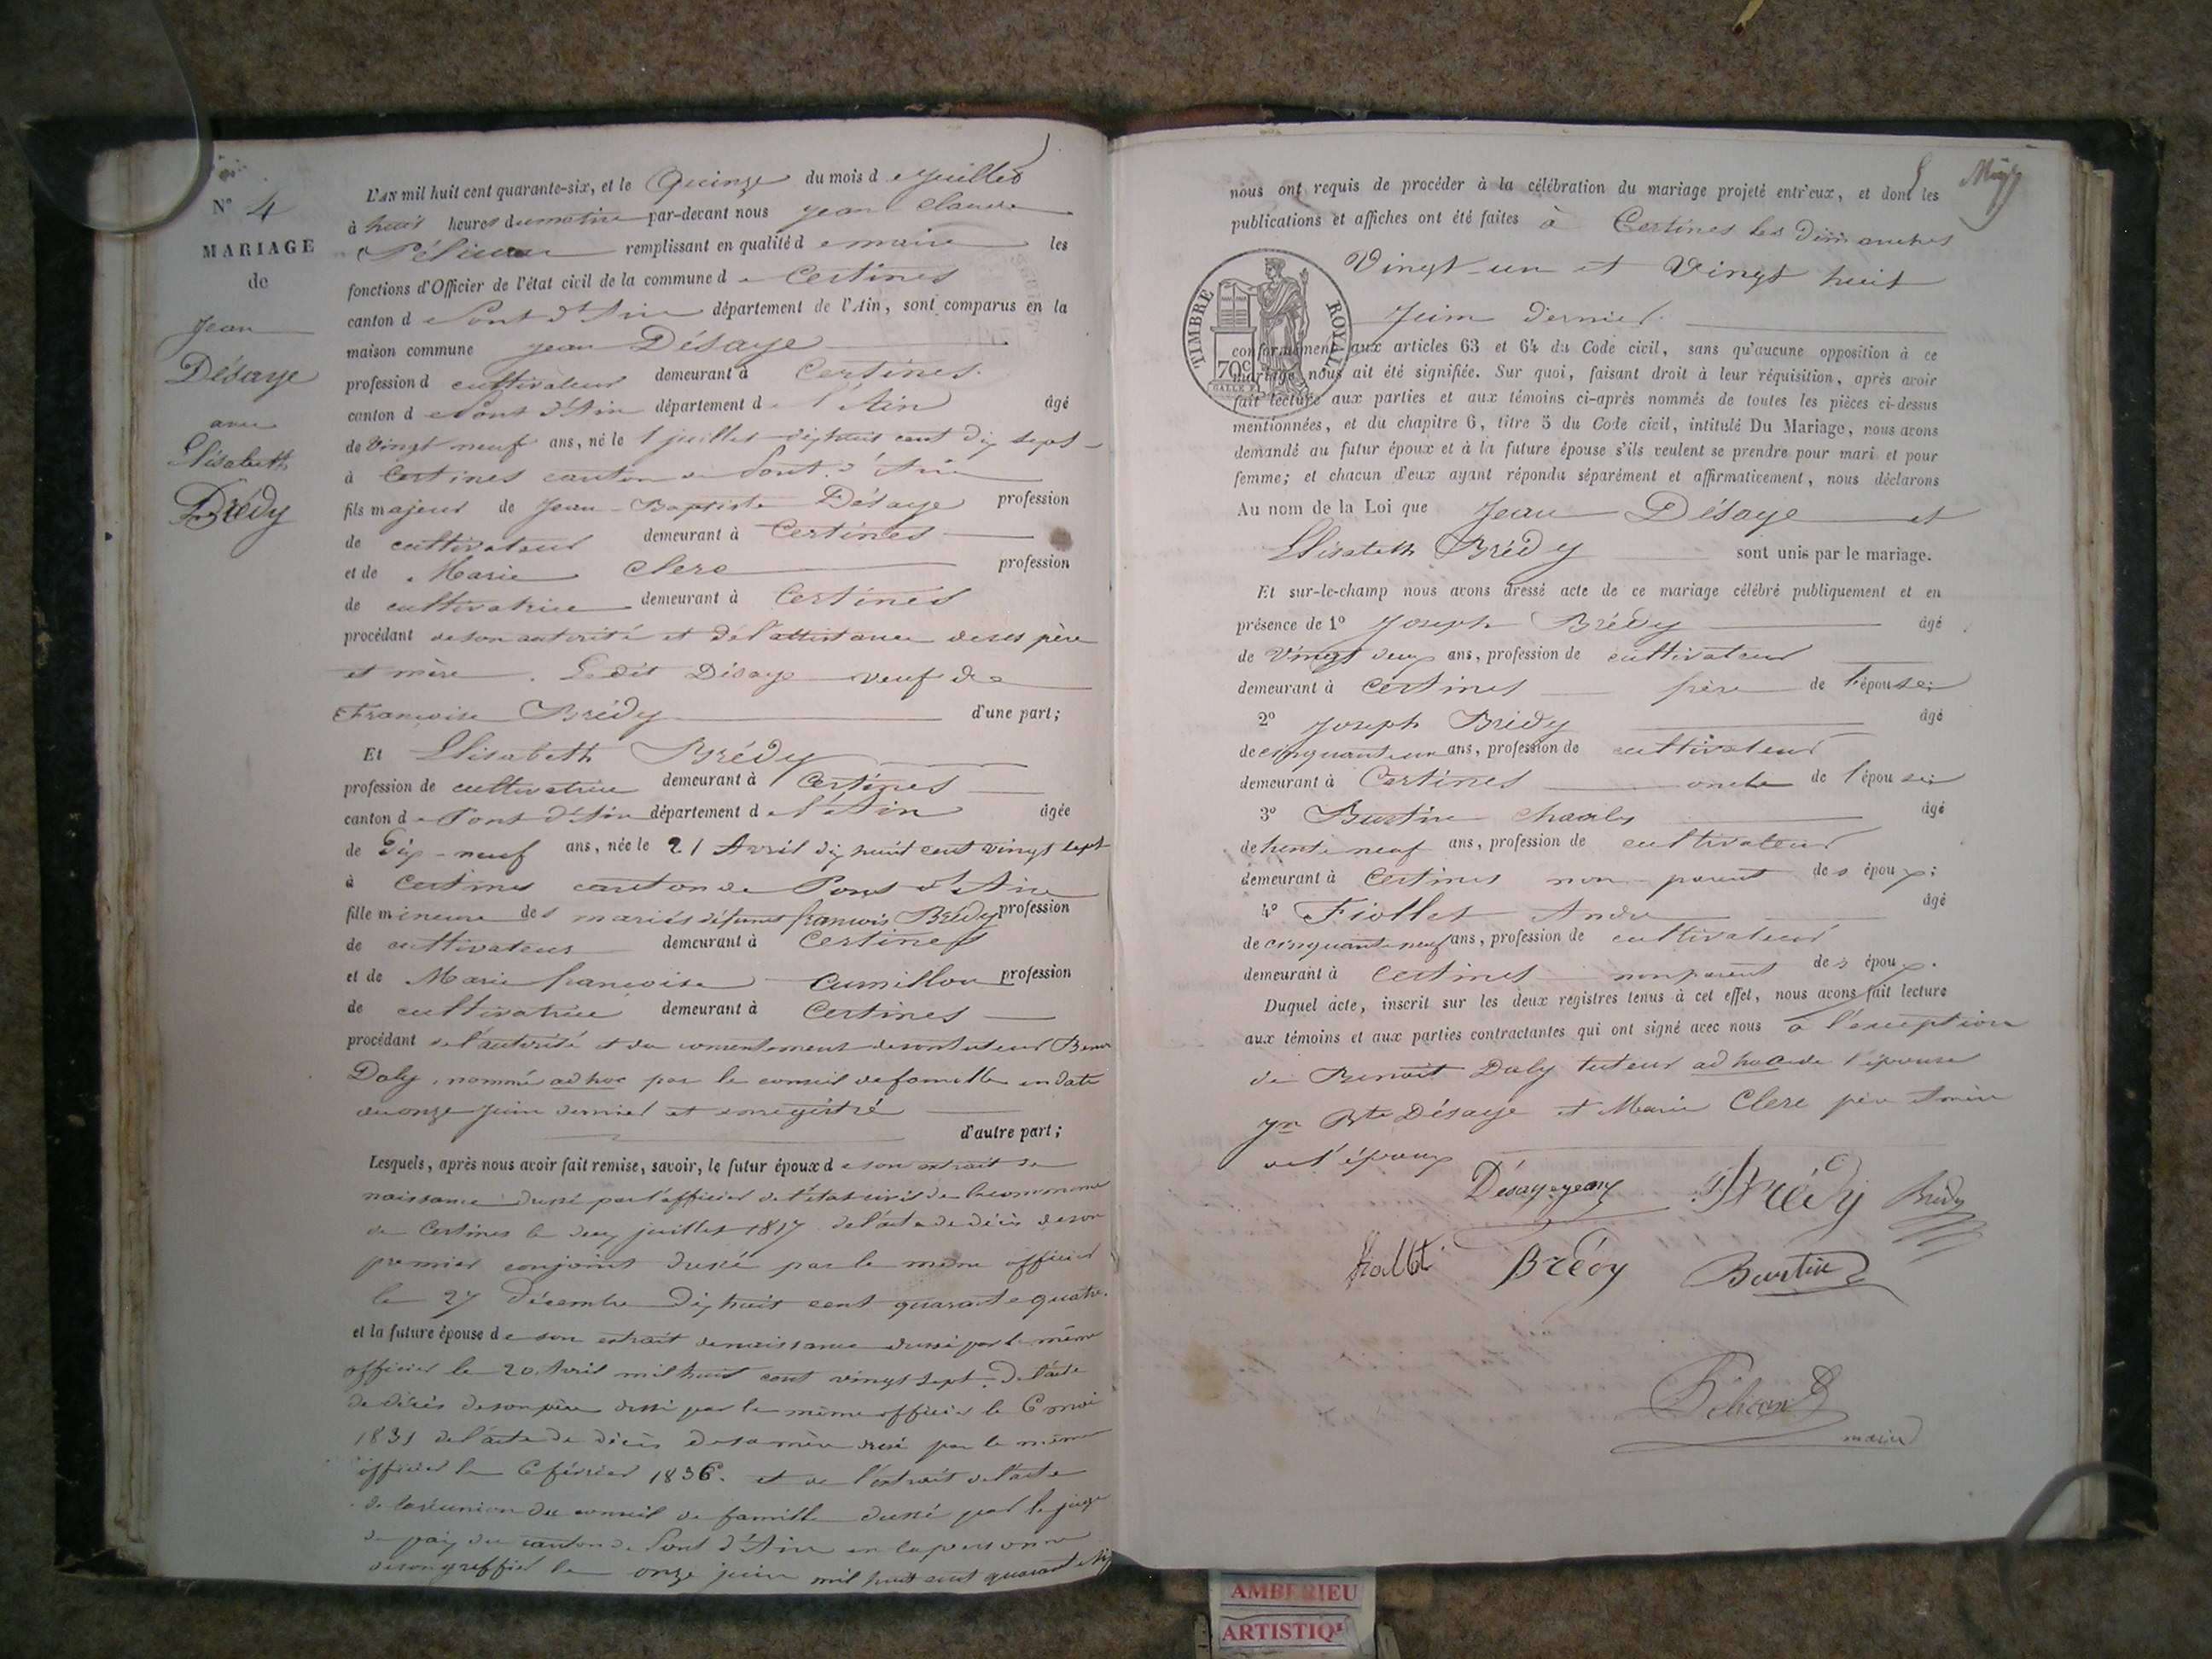 N° 4
MARIAGE
de
Jean
Désaye
avec
Elisabeth
Brédy
L'AN mil huit cent quarante-six, et le Quinze du mois de Juillet
à huit heures du matin par-devant nous Jean Claude
remplissant en qualité de maire les
fonctions d'Officier de l'état civil de la commune de Certines
canton de Pont d'Ain département de l'Ain, sont comparus en la
maison commune Jean Désaye
profession d cultivateur demeurant à Certines.
canton de Pont d'Ain département de l'Ain âgé
de Vingt neuf ans, né le 1 juillet dix huit cent dix sept
à Certines canton de Pont d'Ain
fils majeur de Jean-Baptiste Désaye profession
de cultivateur demeurant à Certines
et de Marie Clerc profession
de cultivatrice demeurant à Certines
procédant de son autorité et de l'assistance de ses père
et mère. Ledit Désaye veuf de
Françoise Brédy d'une part;
Et Elisabeth Brédy
profession de cultivatrice demeurant à Certines
canton de Pont d'Ain département de l'Ain âgée
de Dix-neuf ans, née le 21 Avril dix huit cent vingt sept
à Certines canton de Pont d'Ain
fille mineure des mariés défunts françois Brédy profession
de cultivateur demeurant à Certines
et de Marie françoise Cumillon profession
de cultivatrice demeurant à Certines
procédant de l'autorité et du consentement de son tuteur
Daly, nommé ad hoc par le conseil de famille en date
du onze Juin dernier et enregistré
d'autre part;
Lesquels, après nous avoir fait remise, savoir, le futur époux de son extrait de
naissance dressé par l'officier de l'état civil de la commune
de Certines le deux juillet 1817 de l'acte de décès de son
premier conjoint dressé par le même officier
le 27 Décembre Dix huit cent quarante quatre.
et la future épouse de son extrait de naissance dressé par le même
officier le 20 Avril mil huit cent vingt sept. De l'acte
de décès de son père dressé par le même officier le 6 mai
1831 de l'acte de décès de sa mère dressé par le même
officier le 6 février 1836. et de l'extrait de l'acte
de la réunion du conseil de famille dressé par le juge
de paix du canton de Pont d'Ain en la personne
de son greffier le onze juin mil huit cent quarante six
nous ont requis de procéder à la célébration du mariage projeté entr'eux, et dont les
publications et affiches ont été faites à Certines les dimanches
Vingt-un et Vingt huit
Juin dernier.
TIMBRE ROYAL
70c
conformément aux articles 63 et 64 du Code civil, sans qu'aucune opposition à ce
mariage nous ait été signifiée. Sur quoi, faisant droit à leur réquisition, après avoir
fait lecture aux parties et aux témoins ci-après nommés de toutes les pièces ci-dessus
mentionnées, et du chapitre 6, titre 5 du Code civil, intitulé Du Mariage, nous avons
demandé au futur époux et à la future épouse s'ils veulent se prendre pour mari et pour
femme; et chacun d'eux ayant répondu séparément et affirmativement, nous déclarons
Au nom de la Loi que Jean Désaye et
Elisabeth Brédy sont unis par le mariage.
Et sur-le-champ nous avons dressé acte de ce mariage célébré publiquement et en
présence de 1° Joseph Brédy âgé
de Vingt deux ans, profession de cultivateur
demeurant à Certines frère de l'épouse;
2° Joseph Brédy âgé
de cinquante un ans, profession de cultivateur
demeurant à Certines oncle de l'épouse;
3° Burtin Charles âgé
de trente neuf ans, profession de cultivateur
demeurant à Certines non parent des époux;
4° Fiollet André âgé
de cinquante neuf ans, profession de cultivateur
demeurant à Certines non parent des époux.
Duquel acte, inscrit sur les deux registres tenus à cet effet, nous avons fait lecture
aux témoins et aux parties contractantes qui ont signé avec nous à l'exception
de Benoit Daly tuteur ad hoc de l'épouse
Jn Bte Désaye et Marie Clerc père et mère
de l'époux
Désaye jean Brédy Brédy
fiollet Brédy Burtin
maire
AMBERIEU
ARTISTIQ